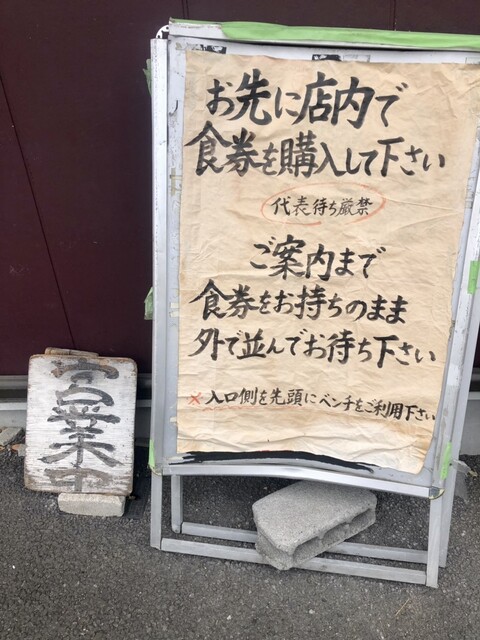 お先に店内で
食券を購入して下さい
代表待ち厳禁
ご案内まで
食券をお持ちのまま
外で並んでお待ち下さい
×入口側を先頭にベンチをご利用下さい
営業中